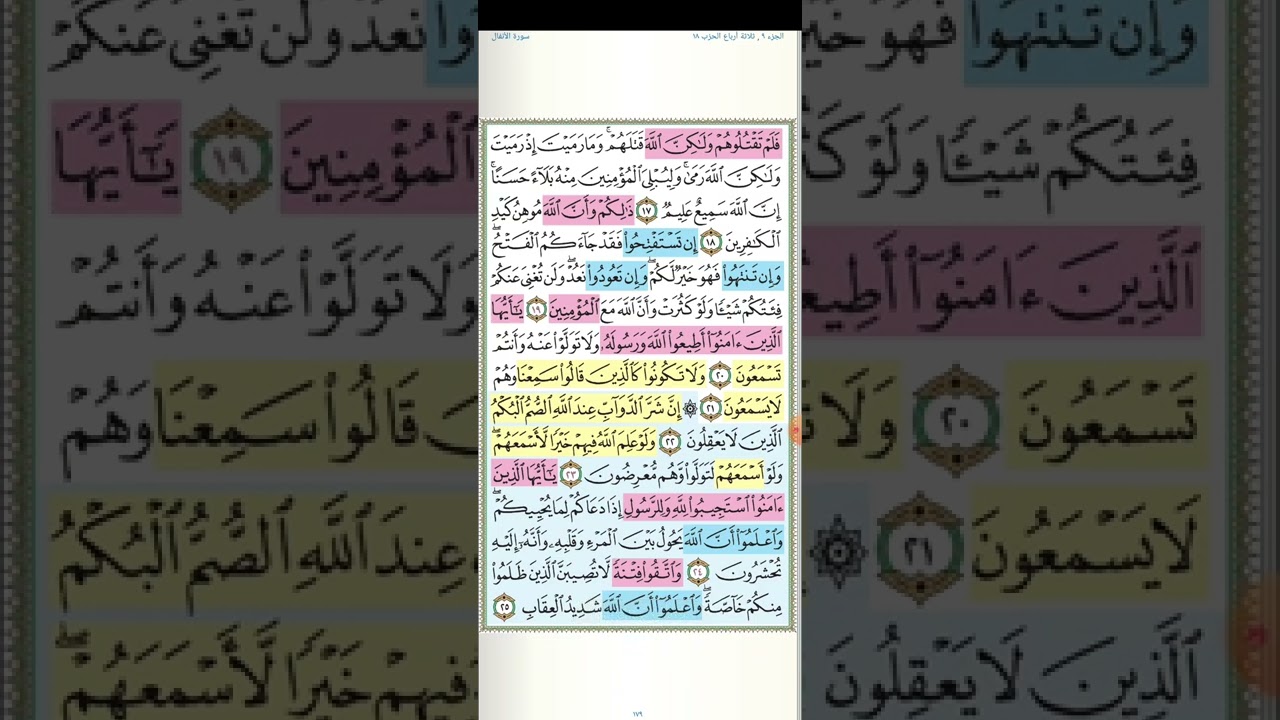 الجزء ٩ , ثلاثة أرباع الحزب ١٨
سورة الأنفال
فَلَمْ تَقْتُلُوهُمْ وَلَٰكِنَّ ٱللَّهَ قَتَلَهُمْ ۚ وَمَا رَمَيْتَ إِذْ رَمَيْتَ
وَلَٰكِنَّ ٱللَّهَ رَمَىٰ ۚ وَلِيُبْلِىَ ٱلْمُؤْمِنِينَ مِنْهُ بَلَآءً حَسَنًا ۚ
إِنَّ ٱللَّهَ سَمِيعٌ عَلِيمٌ ١٧ ذَٰلِكُمْ وَأَنَّ ٱللَّهَ مُوهِنُ كَيْدِ
ٱلْكَٰفِرِينَ ١٨ إِن تَسْتَفْتِحُوا۟ فَقَدْ جَآءَكُمُ ٱلْفَتْحُ ۖ
وَإِن تَنتَهُوا۟ فَهُوَ خَيْرٌ لَّكُمْ ۖ وَإِن تَعُودُوا۟ نَعُدْ وَلَن تُغْنِىَ عَنكُمْ
فِئَتُكُمْ شَيْـًٔا وَلَوْ كَثُرَتْ وَأَنَّ ٱللَّهَ مَعَ ٱلْمُؤْمِنِينَ ١٩ يَٰٓأَيُّهَا
ٱلَّذِينَ ءَامَنُوٓا۟ أَطِيعُوا۟ ٱللَّهَ وَرَسُولَهُۥ وَلَا تَوَلَّوْا۟ عَنْهُ وَأَنتُمْ
تَسْمَعُونَ ٢٠ وَلَا تَكُونُوا۟ كَٱلَّذِينَ قَالُوا۟ سَمِعْنَا وَهُمْ
لَا يَسْمَعُونَ ٢١ ۞ إِنَّ شَرَّ ٱلدَّوَآبِّ عِندَ ٱللَّهِ ٱلصُّمُّ ٱلْبُكْمُ
ٱلَّذِينَ لَا يَعْقِلُونَ ٢٢ وَلَوْ عَلِمَ ٱللَّهُ فِيهِمْ خَيْرًا لَّأَسْمَعَهُمْ ۖ
وَلَوْ أَسْمَعَهُمْ لَتَوَلَّوا۟ وَّهُم مُّعْرِضُونَ ٢٣ يَٰٓأَيُّهَا ٱلَّذِينَ
ءَامَنُوا۟ ٱسْتَجِيبُوا۟ لِلَّهِ وَلِلرَّسُولِ إِذَا دَعَاكُمْ لِمَا يُحْيِيكُمْ ۖ
وَٱعْلَمُوٓا۟ أَنَّ ٱللَّهَ يَحُولُ بَيْنَ ٱلْمَرْءِ وَقَلْبِهِۦ وَأَنَّهُۥٓ إِلَيْهِ
تُحْشَرُونَ ٢٤ وَٱتَّقُوا۟ فِتْنَةً لَّا تُصِيبَنَّ ٱلَّذِينَ ظَلَمُوا۟
مِنكُمْ خَآصَّةً ۖ وَٱعْلَمُوٓا۟ أَنَّ ٱللَّهَ شَدِيدُ ٱلْعِقَابِ ٢٥
١٧٩